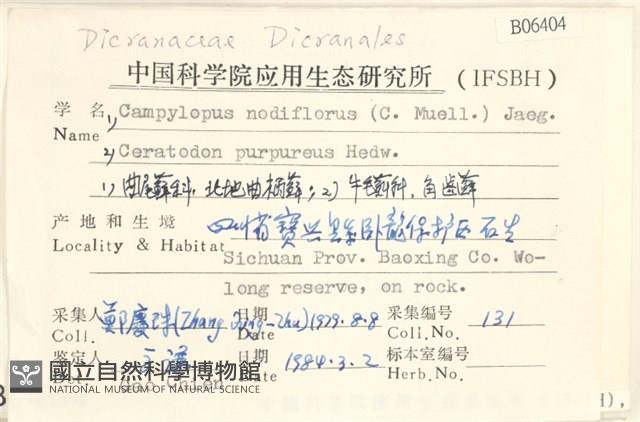 B06404
Dicranaceae Dicranales
中国科学院应用生态研究所 (IFSBH)
学名 1) Campylopus nodiflorus (C. Muell.) Jaeg.
Name
2) Ceratodon purpureus Hedw.
1) 曲尾藓科, 北地曲柄藓; 2) 牛毛藓科, 角齿藓
产地和生境 四川省寶兴县卧龍保护区石生
Locality & Habitat Sichuan Prov. Baoxing Co. Wo-
long reserve, on rock.
采集人 鄭慶珠 日期 1979.8.8 采集编号 131
Coll. Date Coll.No.
鉴定人 日期 1984.3.2 标本室编号
Date Herb.No.
國立自然科學博物館
NATIONAL MUSEUM OF NATURAL SCIENCE